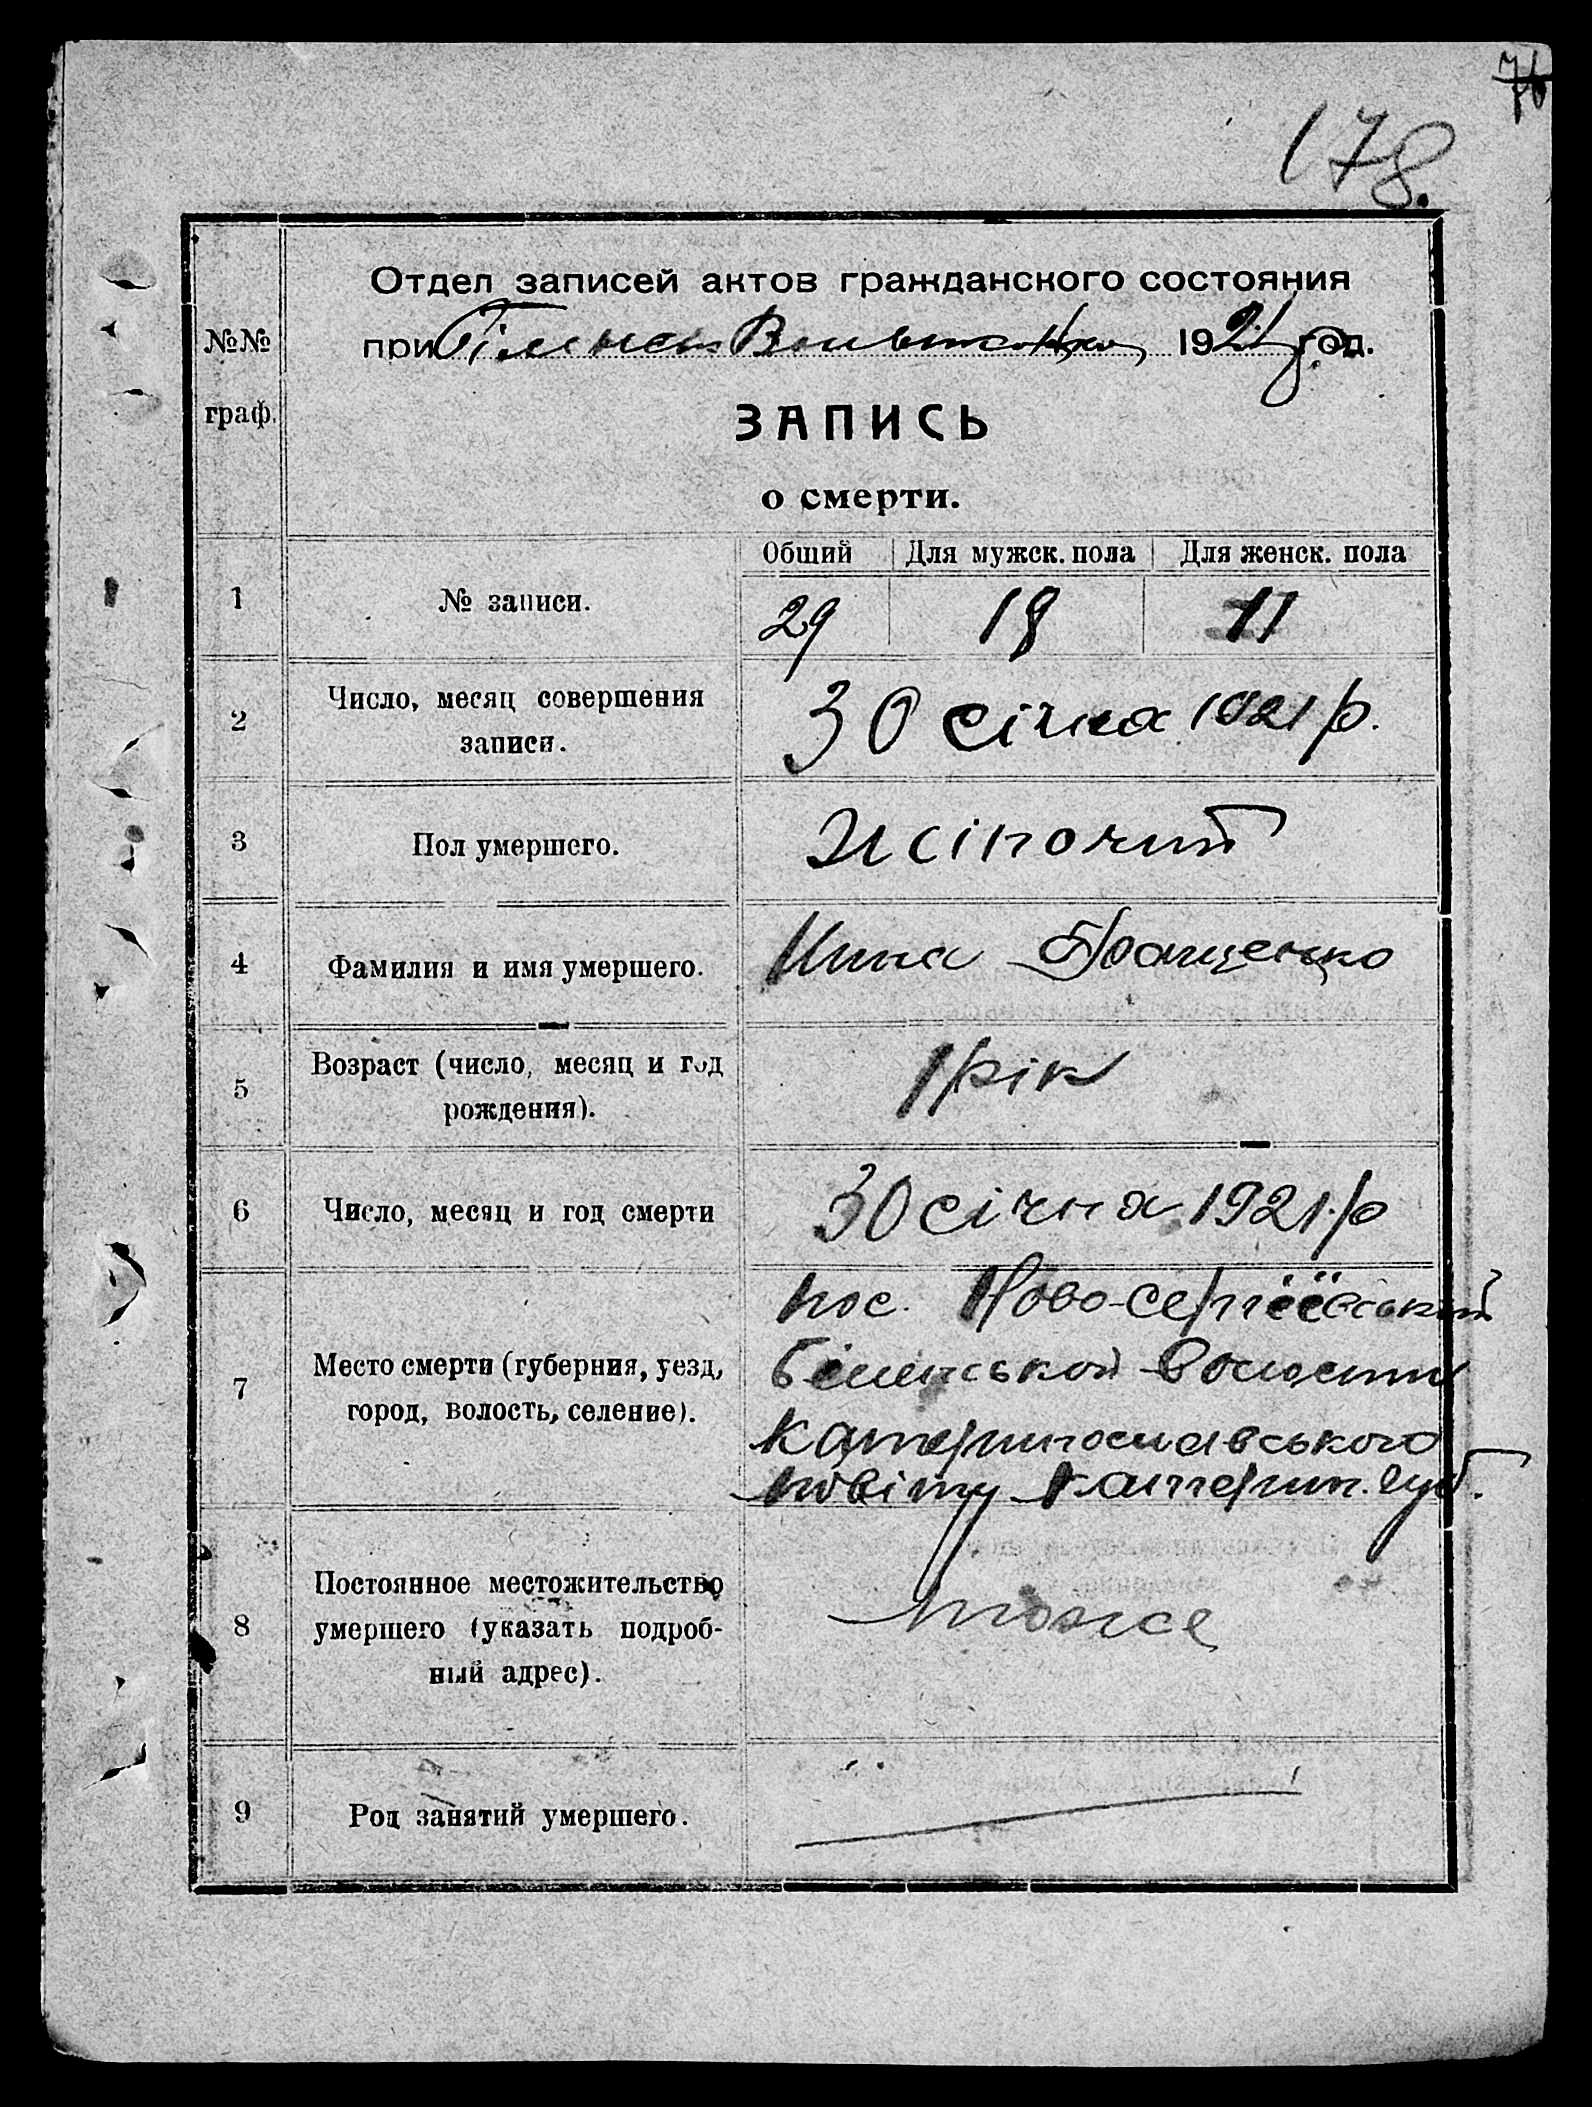 76
178.
Отдел записей актов гражданского состояния
при 1921 год.
№№
граф.
ЗАПИСЬ
о смерти.
Общий Для мужск. пола Для женск. пола
1 № записи. 29 18 11
2 Число, месяц совершения
записи. 30 січня 1921 р.
3 Пол умершего. жіночий
4 Фамилия и имя умершего.
5 Возраст (число, месяц и год
рождения). 1 рік
6 Число, месяц и год смерти 30 січня 1921 р
пос. Ново-Сергіевський
7 Место смерти (губерния, уезд, Біленської волости
город, волость, селение). Катеринославського
повіту Катерин. губ.
8 Постоянное местожительство
умершего (указать подроб-
ный адрес). тоже
9 Род занятий умершего.